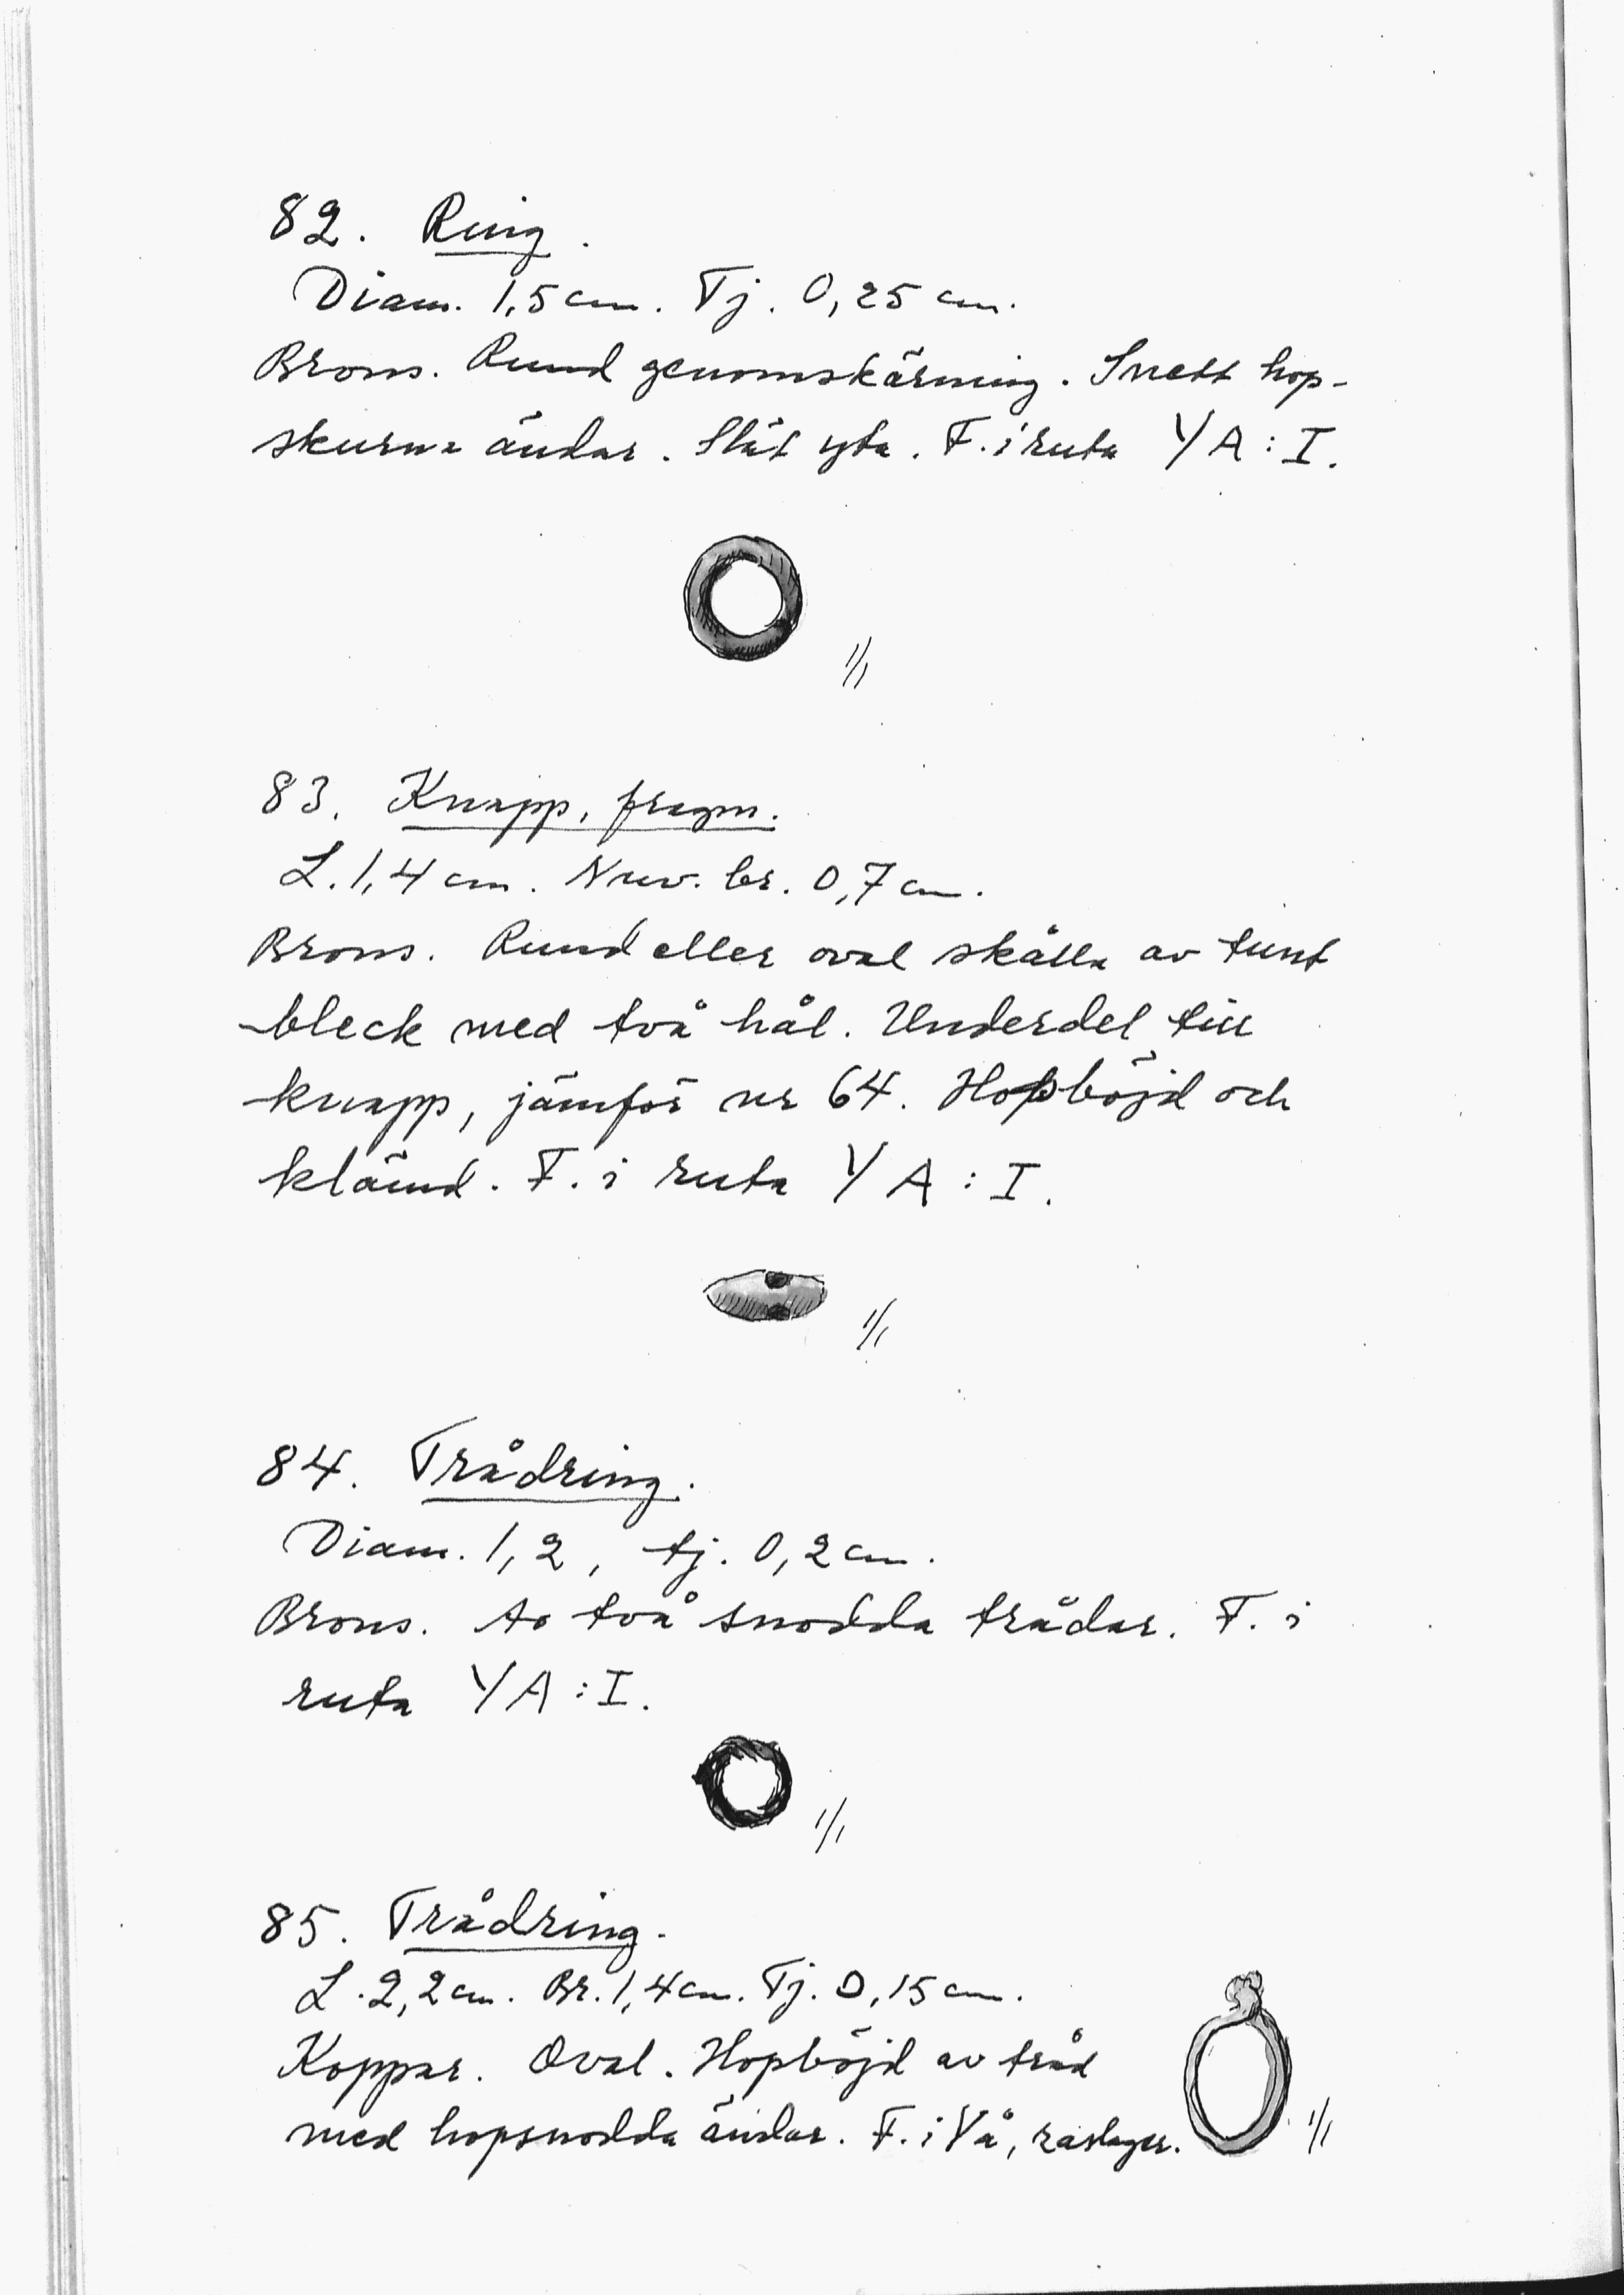 82. Ring.
Diam. 1,5 cm. Tj. 0,25 cm.
Brons. Rund genomskärning. Snett hop-
skurna ändar. Slät yta. F. i ruta YA:I.
1/1
83. Knapp, fragm.
L. 1,4 cm. Nuv. br. 0,7 cm.
Brons. Rund eller oval skålla av tunt
bleck med två hål. Underdel till
knapp, jämför nr 64. Hopböjd och
klämd. F. i ruta YA:I.
1/1
84. Trådring.
Diam. 1,2, tj. 0,2 cm.
Brons. Av två snodda trådar. F. i
ruta YA:I.
1/1
85. Trådring.
L. 2,2 cm. Br. 1,4 cm. Tj. 0,15 cm.
Koppar. Oval. Hopböjd av tråd
med hopsnodda ändar. F. i Vå, raslager.
1/1